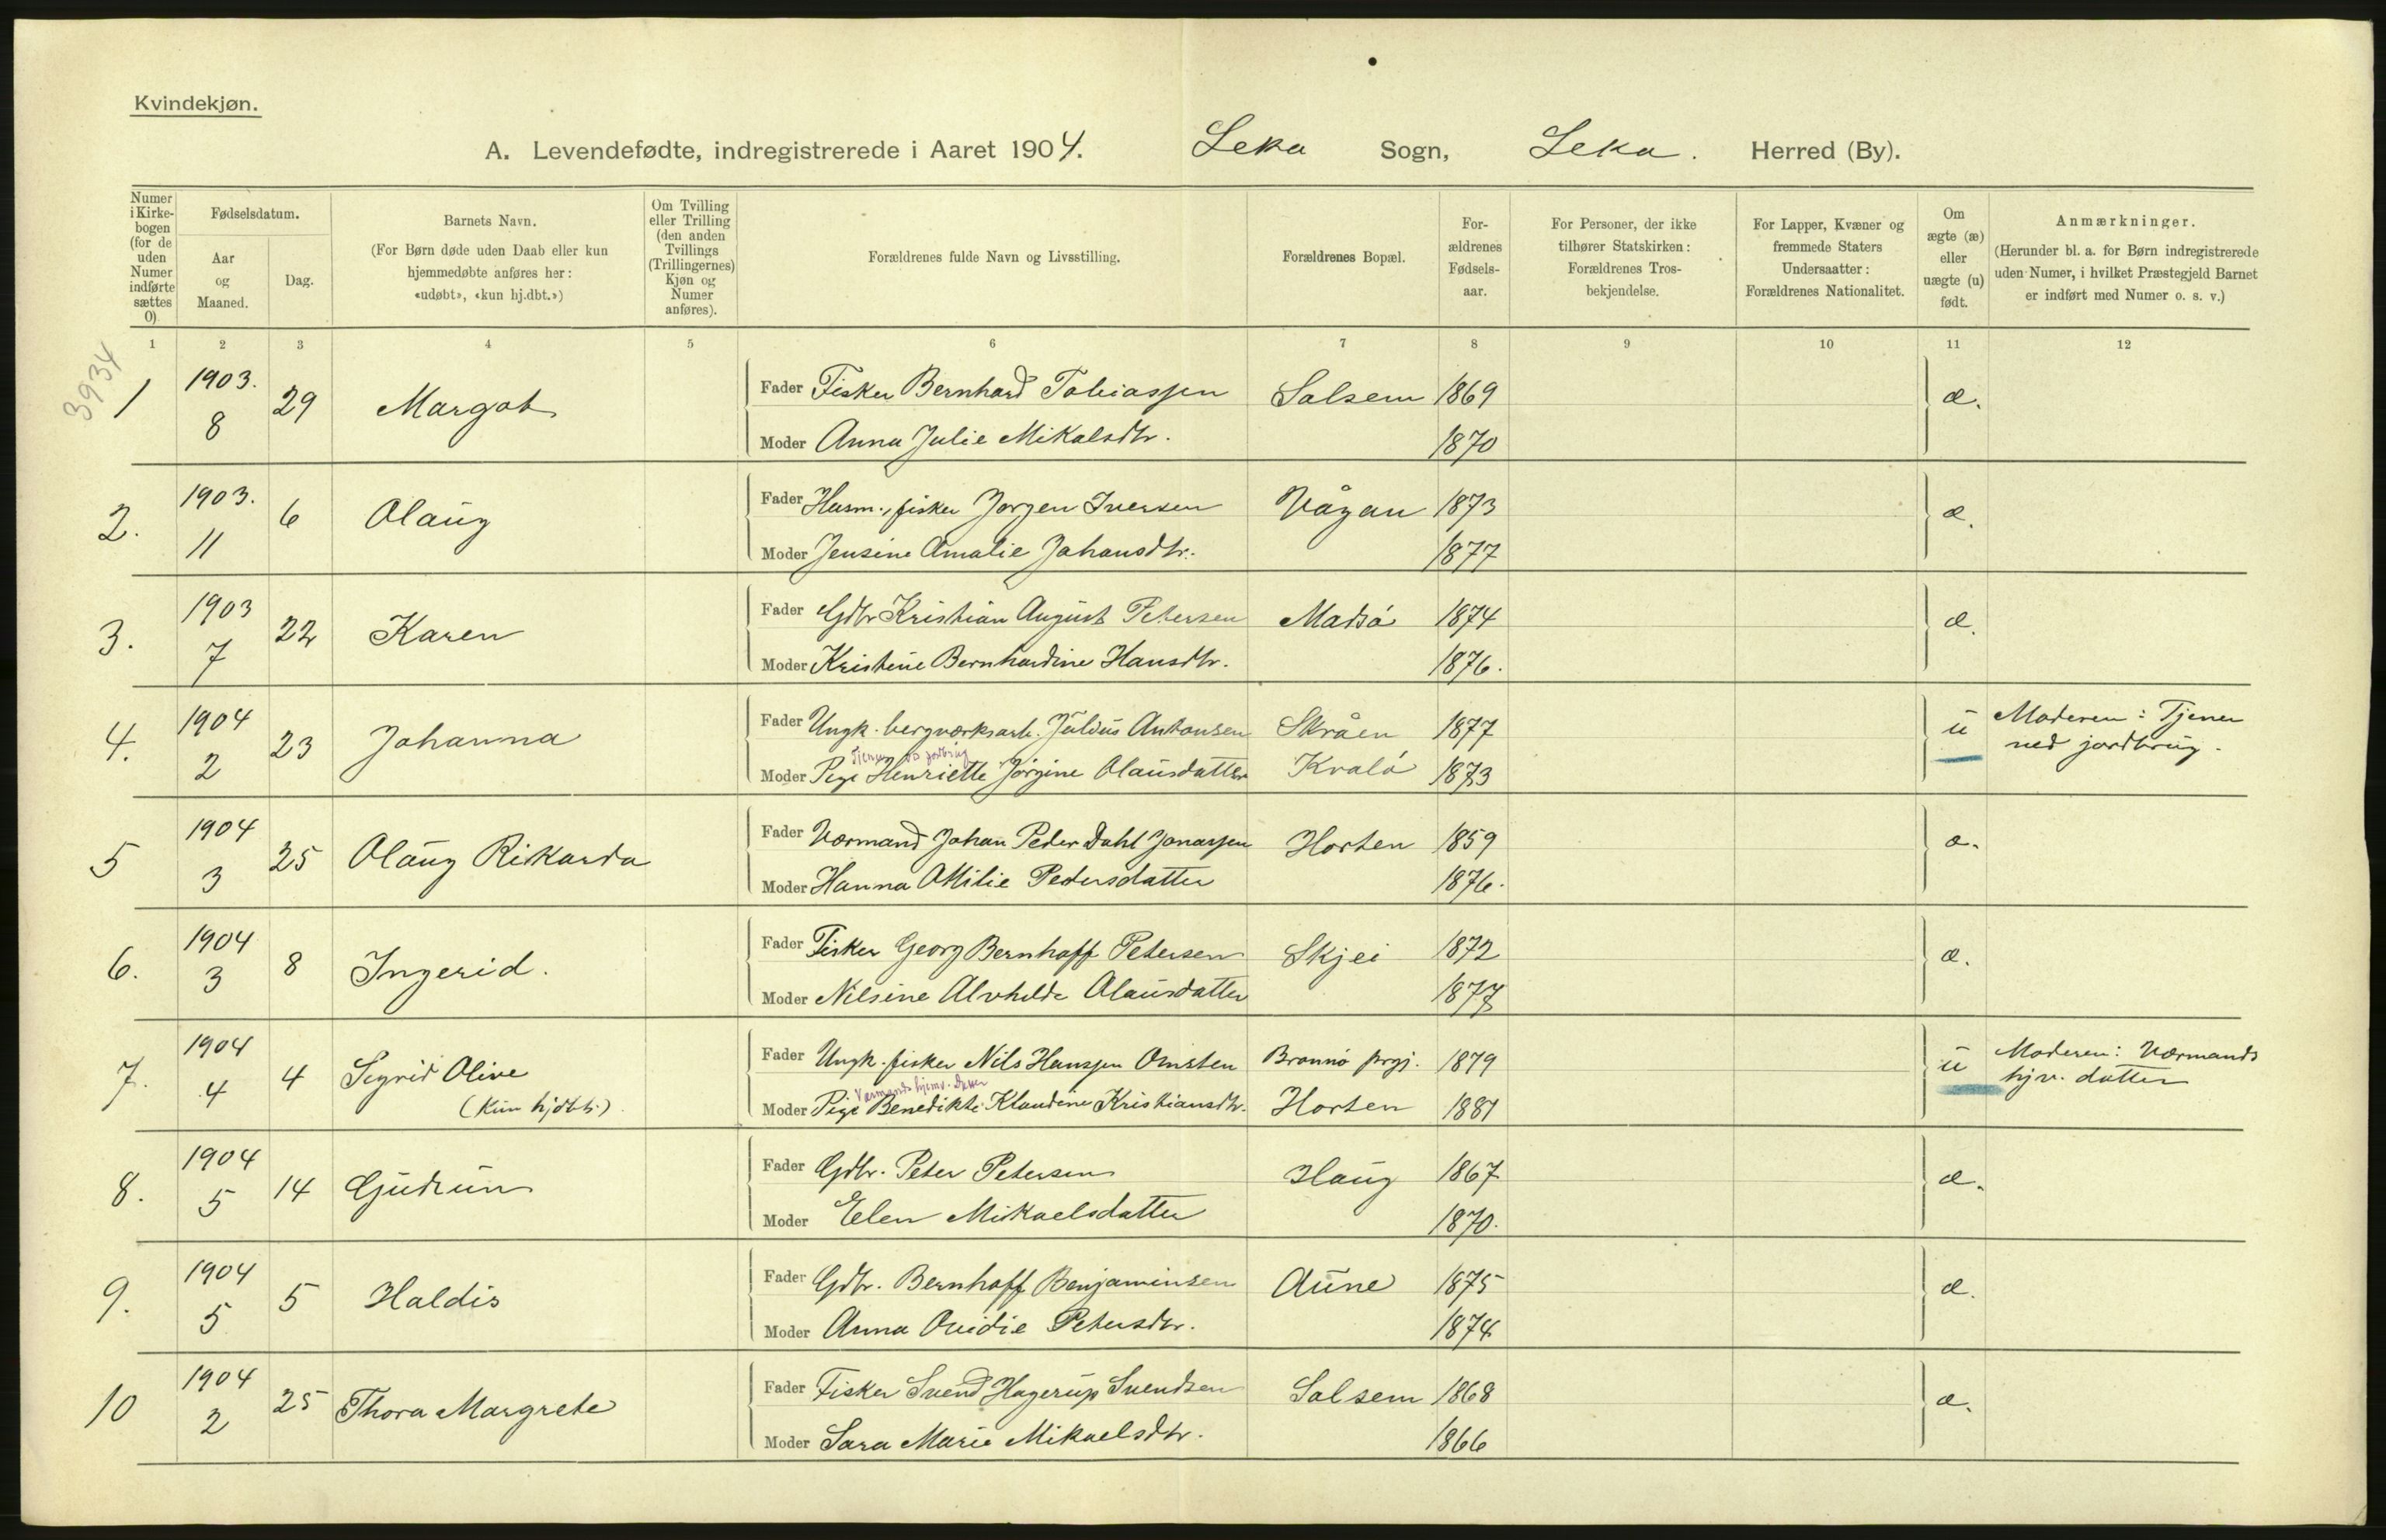 Kvindekjøn.
A. Levendefødte, indregistrerede i Aaret 1904. Leka Sogn, Leka. Herred (By).
Numer i Kirkebogen (for de uden Numer indførte sættes 0)
Fødselsdatum.
Aar og Maaned.
Dag.
Barnets Navn.
(For Børn døde uden Daab eller kun
hjemmedøbte anføres her:
«udøbt», «kun hj.dbt.»)
Om Tvilling
eller Trilling
(den anden
Tvillings
(Trillingernes)
Kjøn og
Numer
anføres).
Forældrenes fulde Navn og Livsstilling.
Forældrenes Bopæl.
For-
ældrenes
Fødsels-
aar.
For Personer, der ikke
tilhører Statskirken:
Forældrenes Tros-
bekjendelse.
For Lapper, Kvæner og
fremmede Staters
Undersaatter:
Forældrenes Nationalitet.
Om
ægte (æ)
eller
uægte (u)
født.
Anmærkninger.
(Herunder bl. a. for Børn indregistrerede
uden Numer, i hvilket Præstegjeld Barnet
er indført med Numer o. s. v.)
1 2 3 4 5 6 7 8 9 10 11 12
3934
1 1903. 8 29 Margot Fader Fisker Bernhard Tobiassen Solsem 1869 æ.
Moder Anna Julie Mikalsdtr. 1870
2. 1903. 11 6 Olaug Fader Husm., fisker Jørgen Iversen Vågan 1873 æ.
Moder Jensine Amalie Johansdtr. 1877
3. 1903 7 22 Karen Fader Gdbr Kristian August Petersen Madsø 1874 æ.
Moder Kristine Bernhardine Hansdtr. 1876.
4. 1904 2 23 Johanna Fader Ungk. bergværksarb. Julius Antonsen Skråen 1877 u Moderen: Tjener
ved jordbrug.
Tjener ved jordbrug
Moder Pige Henriette Jørgine Olausdatter Kvalø 1873
5 1904 3 25 Olaug Rikarda Fader Værmand Johan Peder Dahl Jonassen Horten 1859 æ.
Moder Hanna Otilie Pedersdatter 1876.
6. 1904 3 8 Ingerid. Fader Fisker Georg Bernhoff Petersen Skjei 1872 æ.
Moder Nilsine Alvhilde Olausdatter 1877
7. 1904 4 4 Sigrid Olive
(Kun hjdbt.) Fader Ungk. fisker Nils Hanssen Omsten Brønnø prgj. 1879 u Moderen: Værmands
hjv. datter
Værmands hjemv. datter
Moder Pige Benedikte Klaudine Kristiansdtr. Horten 1881
8. 1904 5 14 Gudrun Fader Gdbr. Peter Petersen Haug 1867 æ.
Moder Elen Mikaelsdatter 1870.
9. 1904 5 5 Haldis Fader Gdbr. Bernhoff Benjaminsen Aune 1875 æ.
Moder Anna Ovidie Petersdtr. 1874
10 1904 2 25 Thora Margrete Fader Fisker Svend Hagerup Svendsen Solsem 1868 æ.
Moder Sara Marie Mikaelsdtr. 1866